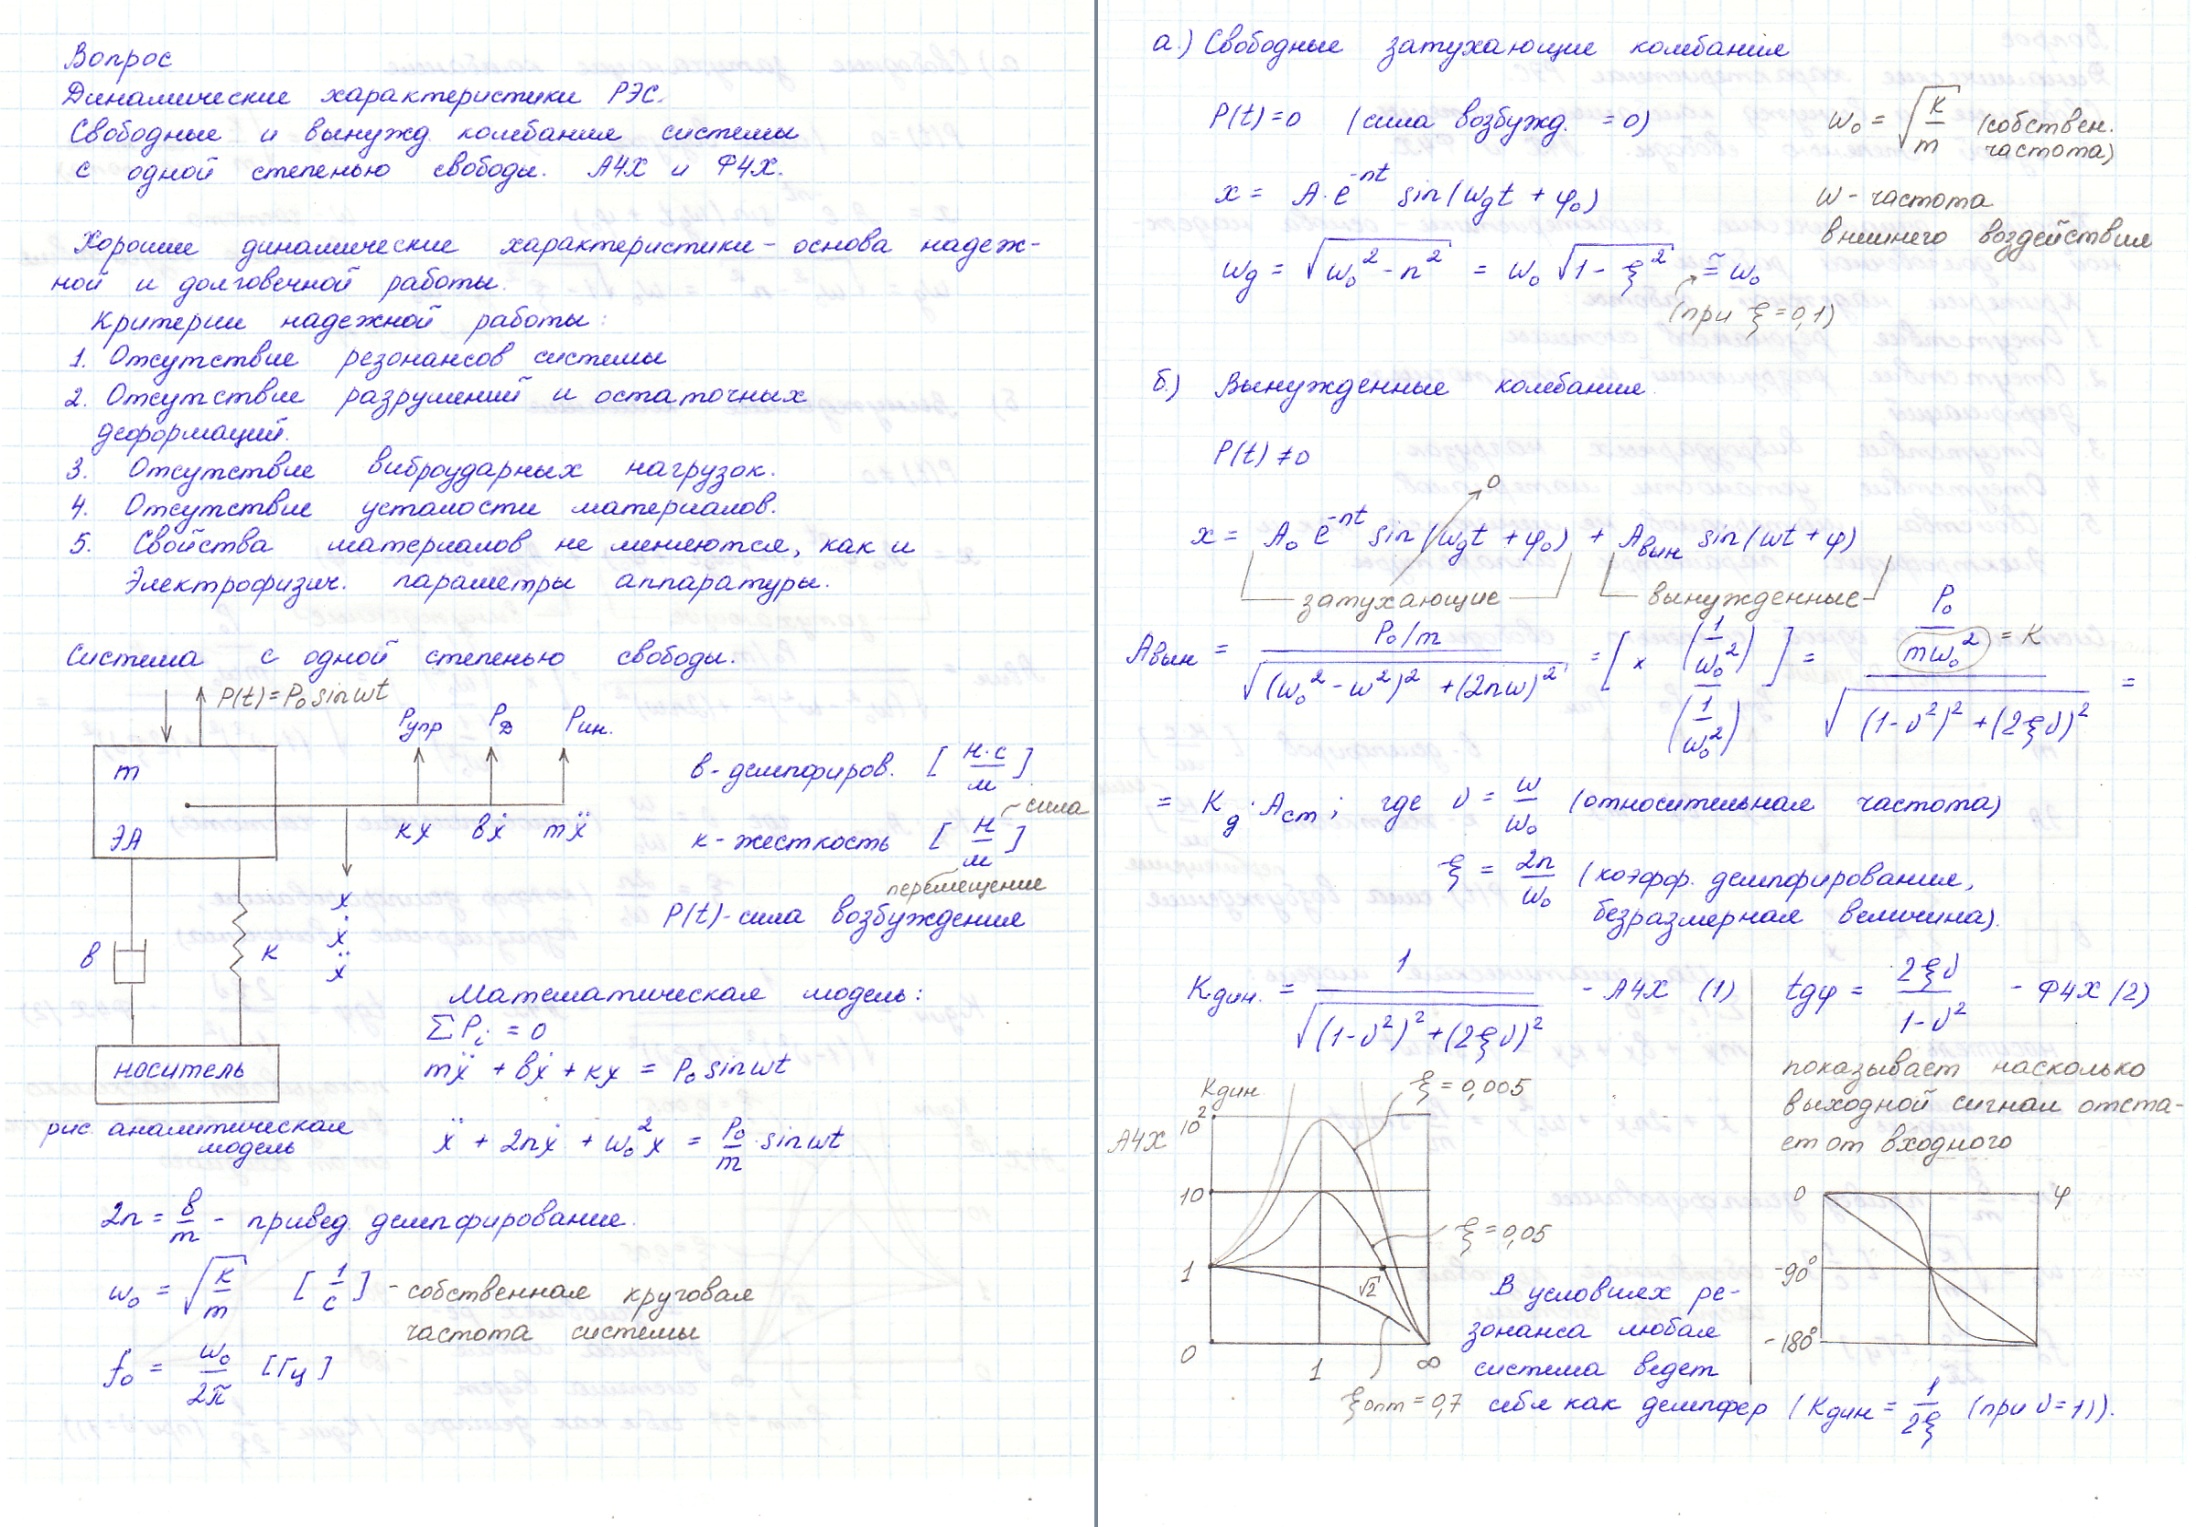 Вопрос
Динамические характеристики РЭС.
Свободные и вынужд. колебания системы
с одной степенью свободы. АЧХ и ФЧХ.
Хорошие динамические характеристики - основа надеж-
ной и долговечной работы.
Критерии надежной работы:
1. Отсутствие резонансов системы
2. Отсутствие разрушений и остаточных
деформаций.
3. Отсутствие виброударных нагрузок.
4. Отсутствие усталости материалов.
5. Свойства материалов не меняются, как и
Электрофизич. параметры аппаратуры.
Система с одной степенью свободы.
P(t) = P₀ sinωt
Pупр Pд Pин.
m
ЭА
кx вẋ mẍ
x
ẋ
ẍ
в
к
носитель
рис. аналитическая
модель
в - демпфиров. [Н·с/м]
сила
к - жесткость [Н/м]
перемещение
P(t) - сила возбуждения
Математическая модель:
∑Pᵢ = 0
mẍ + вẋ + кx = P₀ sinωt
ẍ + 2nẋ + ω₀²x = P₀/m · sinωt
2n = в/m - привед. демпфирование.
ω₀ = √(к/m) [1/с] - собственная круговая
частота системы
f₀ = ω₀/2π [Гц]
а.) Свободные затухающие колебания
P(t) = 0 (сила возбужд. = 0)
ω₀ = √(к/m) (собствен.
частота)
x = A·e⁻ⁿᵗ sin(ωgt + φ₀)
ω - частота
внешнего воздействия
ωg = √(ω₀² - n²) = ω₀ √(1 - ξ²) ≅ ω₀
(при ξ = 0,1)
б.) Вынужденные колебания
P(t) ≠ 0
0
x = A₀ e⁻ⁿᵗ sin(ωgt + φ₀) + Aвын sin(ωt + φ)
затухающие вынужденные
Aвын = (P₀/m) / √((ω₀² - ω²)² + (2nω)²) = [× (1/ω₀²) / (1/ω₀²)] = (P₀ / mω₀²) / √((1-ν²)² + (2ξν)²) =
= К
= Kg · Aст; где ν = ω/ω₀ (относительная частота)
ξ = 2n/ω₀ (коэфф. демпфирования,
безразмерная величина).
Kдин. = 1 / √((1-ν²)² + (2ξν)²) - АЧХ (1)
tgφ = 2ξν / (1-ν²) - ФЧХ (2)
показывает насколько
выходной сигнал отста-
ет от входного
Kдин
АЧХ
10²
10
1
0
1
∞
√2
ξ = 0,005
ξ = 0,05
ξопт = 0,7
0
-90°
-180°
φ
В условиях ре-
зонанса любая
система ведет
себя как демпфер (Kдин = 1/2ξ (при ν = 1)).